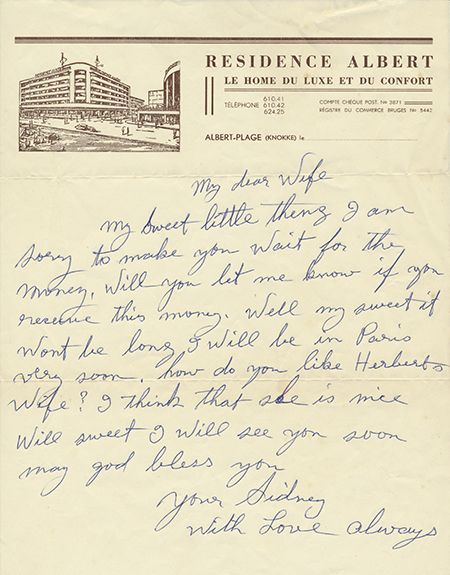 RESIDENCE ALBERT
LE HOME DU LUXE ET DU CONFORT
TÉLÉPHONE 610.41
610.42
624.25
COMPTE CHÈQUE POST. No 3871
RÉGISTRE DU COMMERCE BRUGES No 8442
ALBERT-PLAGE (KNOKKE) le
My dear Wife
My Sweet little thing I am
sorry to make you Wait for the
money, Will you let me know if you
receive this money. Well my sweet it
Wont be long I Will be in Paris
very soon. how do you like Herberts
Wife? I think that she is nice
Will sweet I Will see you soon
may god bless you
Your Sidney
With Love always